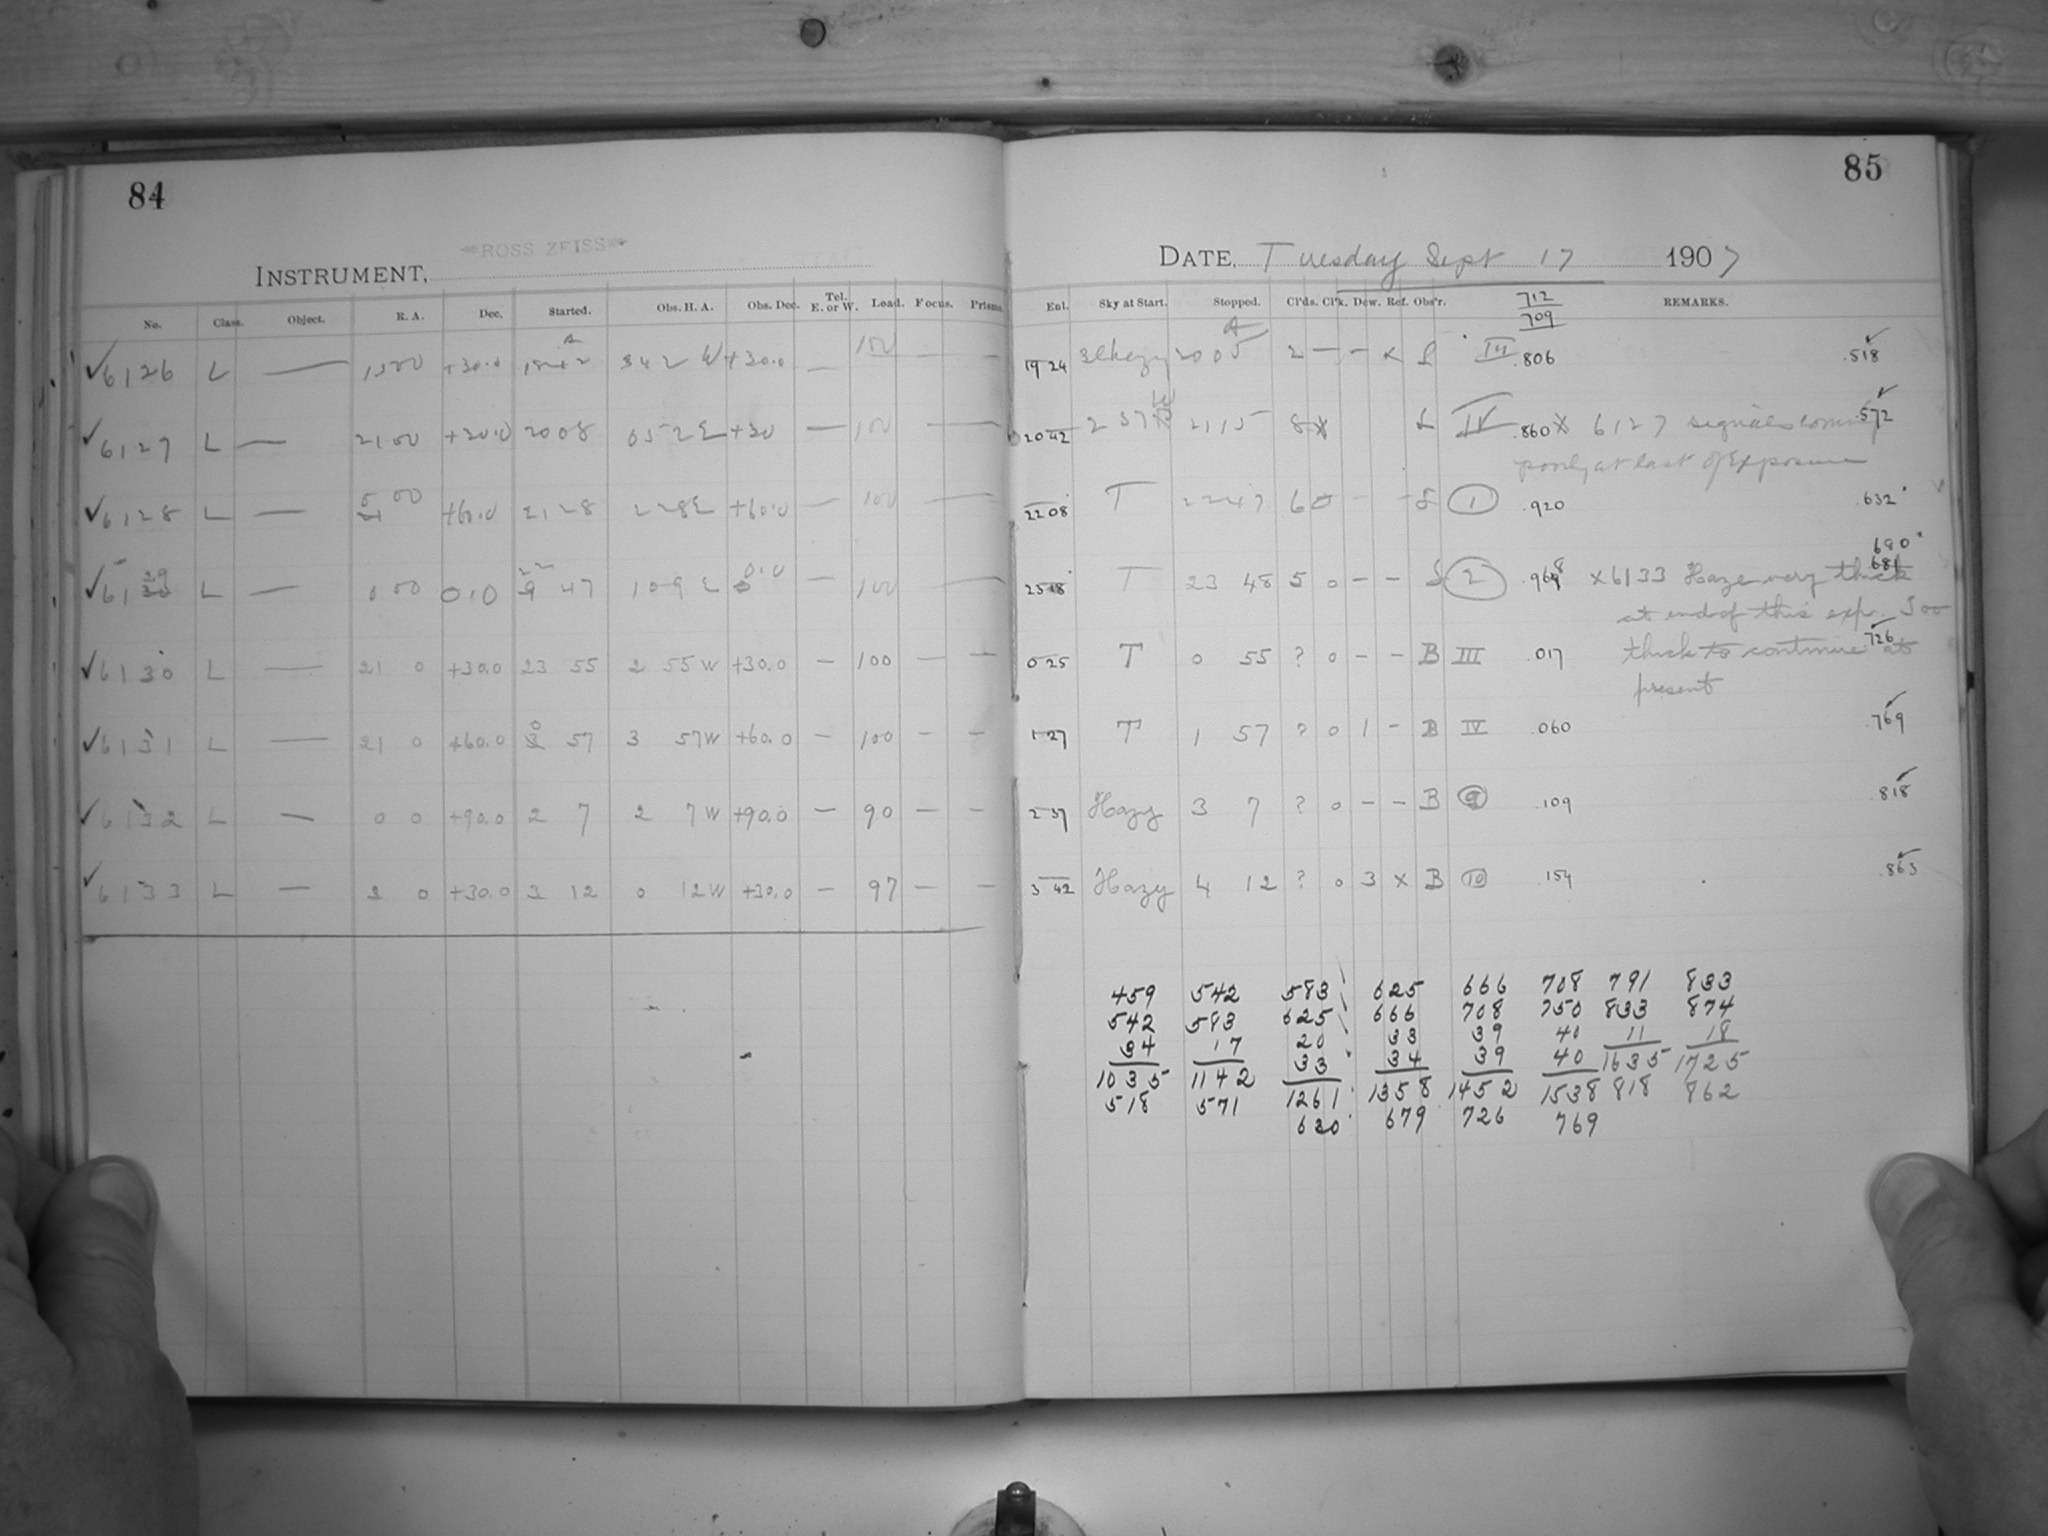 84
85
ROSS ZEISS
INSTRUMENT,
DATE, Tuesday Sept 17 1907
No. Class. Object. R. A. Dec. Started. Obs. H. A. Obs. Dec. Tel. E. or W. Load. Focus. Prisms.
Enl. Sky at Start. Stopped. Cl'ds. Cl'k. Dew. Ref. Obs'r. 712 REMARKS.
709
✓6126 L — +30.0 3 42 W +30.0 — 100 — — 19 24 20 05 2 — — S III .806 .518
✓6127 L — 21 00 +30.0 20 08 0 52 E +30 — 100 — 20 42 21 15 8 x IV .860 x 6127 signals coming .572
poorly at last of Exposure
✓6128 L — 0 00 +60.0 21 28 2 28 E +60.0 — 100 — 22 08 T 22 47 6 0 - - S 1 .920 .632
680
✓6129 L — 0 00 0.0 22 47 1 09 E 0.0 — 100 — 23 18 T 23 48 5 0 - - S 2 .968 x 6133 Haze very thick 681
at end of this exp. Too
✓6130 L — 21 0 +30.0 23 55 2 55 W +30.0 — 100 — — 0 25 T 0 55 ? 0 - - B III .017 thick to continue at 726
present
✓6131 L — 21 0 +60.0 0 57 3 57 W +60.0 — 100 — — 1 27 T 1 57 ? 0 1 - B IV .060 .769
✓6132 L — 0 0 +90.0 2 7 2 7 W +90.0 — 90 — — 2 37 Hazy 3 7 ? 0 - - B 9 .109 .818
✓6133 L — 3 0 +30.0 3 12 0 12 W +30.0 — 97 — — 3 42 Hazy 4 12 ? 0 3 x B 10 .154 .863
459 542 583 625 666 708 791 833
542 583 625 666 708 750 833 874
34 17 20 33 39 40 11 18
33 34 39 40 1635 1725
1035 1142 1261 1358 1452 1538 818 862
518 571 630 679 726 769